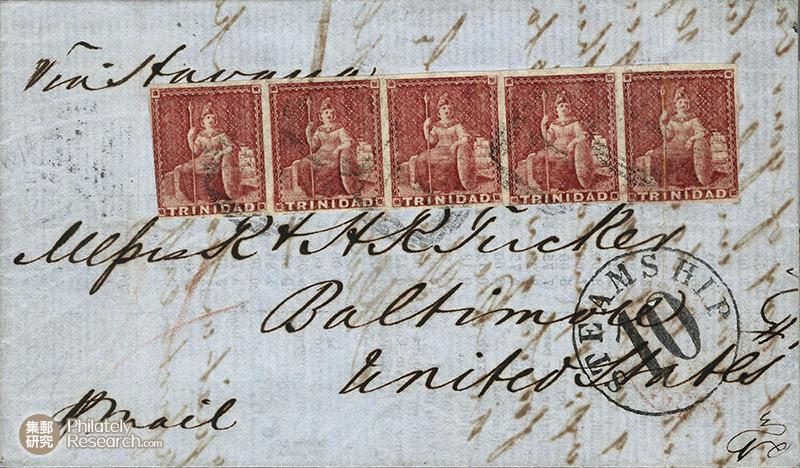 Via Havana
TRINIDAD TRINIDAD TRINIDAD TRINIDAD TRINIDAD
Messrs R & H R Tucker
Baltimore
United States
STEAMSHIP
10
p mail
集郵
研究
Philately
Research.com